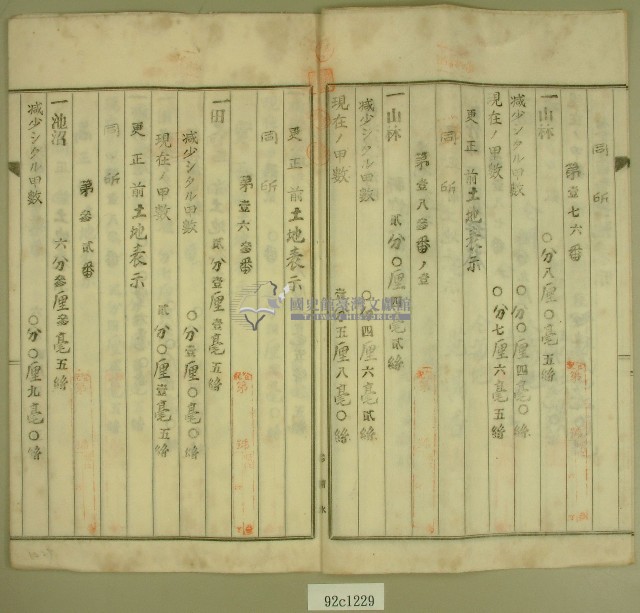 同所
第壹七六番
一山林 〇分八厘〇毫五絲
減少シタル甲数 〇分〇厘四毫〇絲
現在ノ甲数 〇分七厘六毫五絲
更正前土地表示
同所
第壹八参番ノ壹
一山林 貳分〇厘四毫貳絲
減少シタル甲数 〇分四厘六毫貳絲
現在ノ甲数 壹分五厘八毫〇絲
更正前土地表示
同所
第壹六参番
一田 貳分壹厘壹毫五絲
減少シタル甲数 〇分壹厘〇毫〇絲
現在ノ甲数 貳分〇厘壹毫五絲
更正前土地表示
同所
第参貳番
一池沼 六分参厘参毫五絲
減少シタル甲数 〇分〇厘九毫〇絲
國史館臺灣文獻館
TAIWAN HISTORICA
92c1229